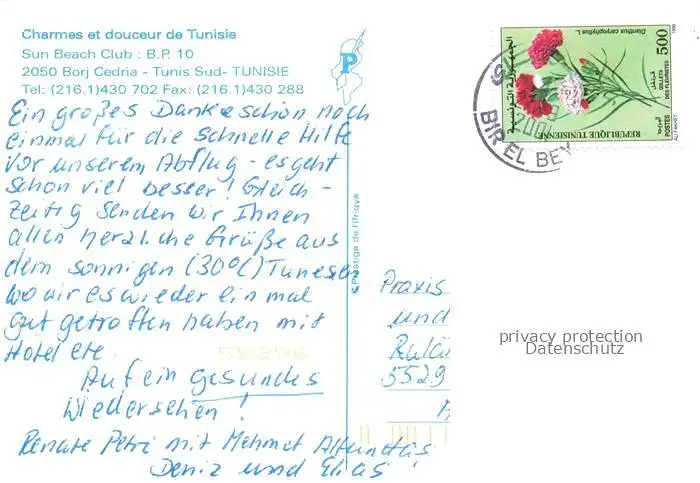 Charmes et douceur de Tunisie
Sun Beach Club : B.P. 10
2050 Borj Cedria - Tunis Sud- TUNISIE
Tel: (216.1)430 702 Fax (216.1)430 288
Ein großes Dankeschön noch
einmal für die schnelle Hilfe
vor unserem Abflug - es geht
schon viel besser! Gleich-
zeitig senden wir Ihnen
allen herzliche Grüße aus
dem sonnigen (30°C) Tunesien
wo wir es wieder einmal
gut getroffen haben mit
Hotel etc.
Auf ein gesundes
Wiedersehen!
Renate Petri mit Mehmet
Deniz und Elias
Prestige de l'Ifriqya
P
Praxis
und
5529
privacy protection
Datenschutz
Dianthus caryophyllus L.
1999
500
الجمهورية التونسية
قرنفل
OEILLETS
DES FLEURISTES
البريد
POSTES
REPUBLIQUE TUNISIENNE
BIR EL BEY